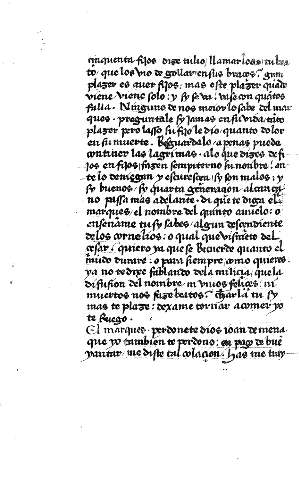 cinquenta fijos dize tulio, llamarlosa tu bea
to. que los vio degollar en sus braços: gran
plazer es aver fijos; mas este plazer quando
viene viene solo: y sy se va. vase con quantos
falla. Ninguno de nos mejor lo sabe del mar
ques. preguntale sy jamas en su vida tanto
plazer pero lasso su fijo le dio quanto dolor
en su muerte. Reguardalo. apenas puede
contener las lagrimas. a lo que dizes de fi
jos en fijos fazen sempiterno su nonbre: an
te lo deniegan y escurescen. sy son malos: y
sy buenos. sy quarta generaçion alcança
no passa mas adelante. di que te diga el
marques. el nombre del quinto avuelo: o
enseñame tu sy sabes. algun descendiente
de los cornelios: o qual que visnieto del
cesar. quiero ya que se Recuerde quanto el
mundo durare: o para siempre como quieres
ya no te dize fablando de la miliçia. que la
difusion del nombre. ni vivos felices: ni
muertos nos faze beatos. charla tu sy
mas te plaze: dexame tornar a comer yo
te Ruego.
El marques. perdonete dios ioan de mena
que yo tambien te perdono: en pago de buen
yantar me diste tal colaçion. Has me tray